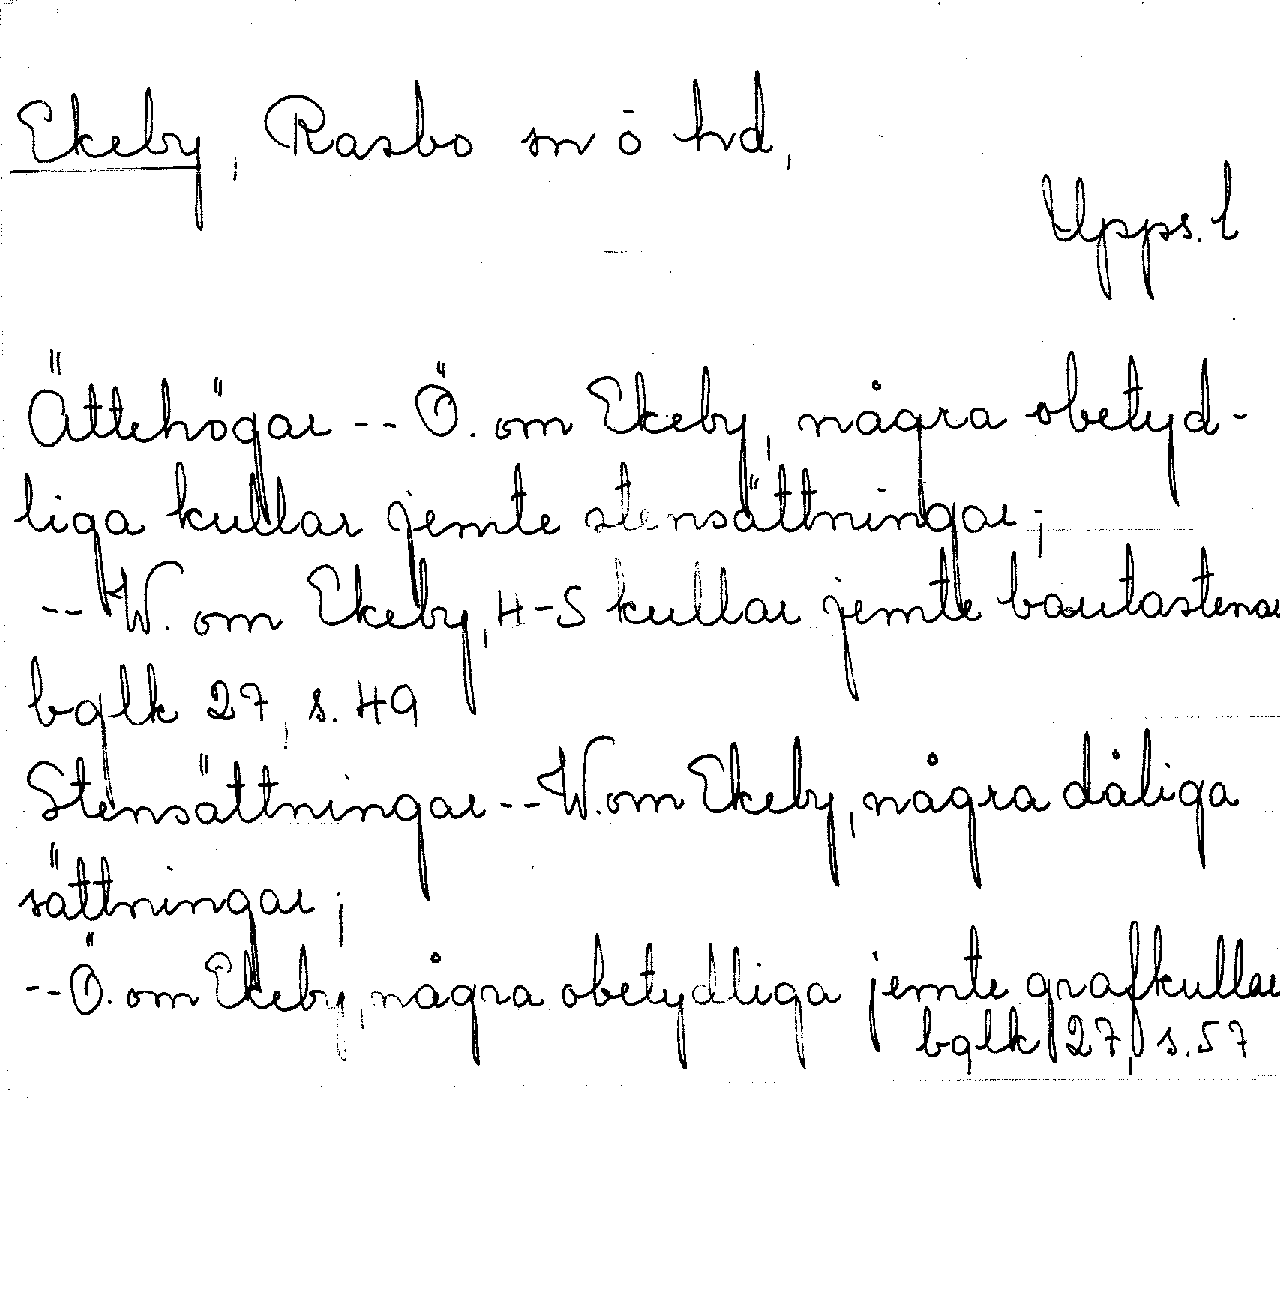 Ekeby, Rasbo sn o hd,
Upps. l
Ättehögar -- Ö. om Ekeby, några obetyd-
liga kullar jemte stensättningar;
-- W. om Ekeby, 4-5 kullar jemte bautastenar
bglk 27, s. 49
Stensättningar -- W. om Ekeby, några dåliga
sättningar;
-- Ö. om Ekeby, några obetydliga jemte grafkullar
bglk 27, s. 57